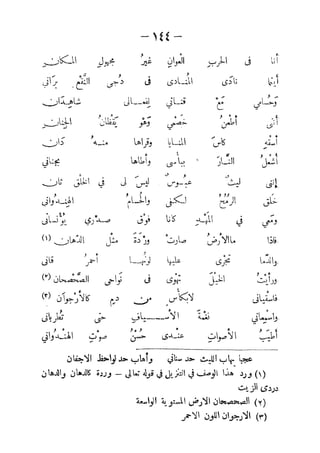 — ١٤٤ —
أنا فى الحرب العوان غيرُ مجهولِ المكانِ
أينما نادَى المنادى فى دُجى النَّقْعِ يرَانى
وحسامي معْ قناتي لفعالى شاهدان
أننى أطعنُ خصْمي وهْو يَقْظانُ الجنانِ
أسقه كاسَ المنايا وقراها منهُ دَان
أشعلُ النَّارَ ببأسى وأطاها بجنانى
إننى ليثٌ عبوس ليسَ لى فى الخَلْق ثانِ
خلق الرُّمْحُ لكفى والحُسامُ الهندُوانى
ومعي فى المهْدِ كانا فوْق صدْرى يُؤْنسانى
فاذا ماالأرْضُ صارتْ ورْدَةً مثْل الدّهانِ (١)
والدّما تجرى عليها لونُها أحمرُ قانى
ورأيْتُ الخيْلَ تهوى فى نواحى الصّحْصحان (٢)
فاسقيانى لابكأسٍ من دمٍ كالأرْجوَان (٣)
واسمِعانِي نغمةَ الأسيافِ حتى تُطربانى
أطيبُ الأصواتِ عندى حُسْنُ صوْتِ الهنْدُوانى
عجبا يهاب الليث حد سنانى وأهاب حد لواحظ الاجفان
(١) ورد هذا الوصف فى التنزيل فى قوله تعالى — وردة كالدهان والدهان
دردى الزيت
(٢) الصحصحان الارض المستوية الواسعة
(٣) الارجوان اللون الاحمر